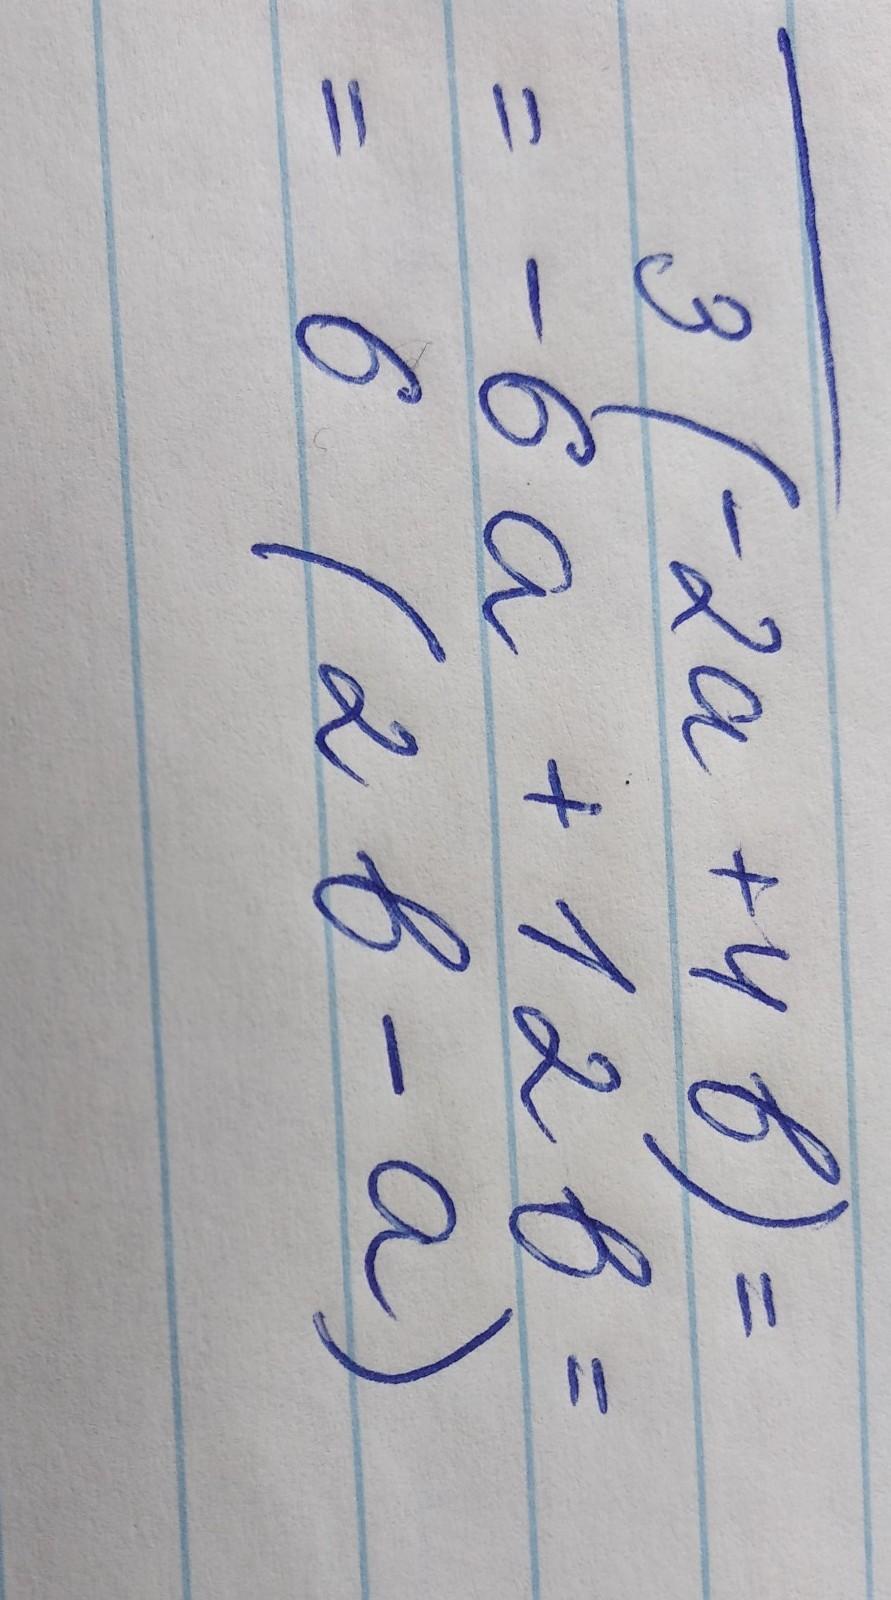 3(-2a+4b)=
=-6a+12b=
=6(2b-a)